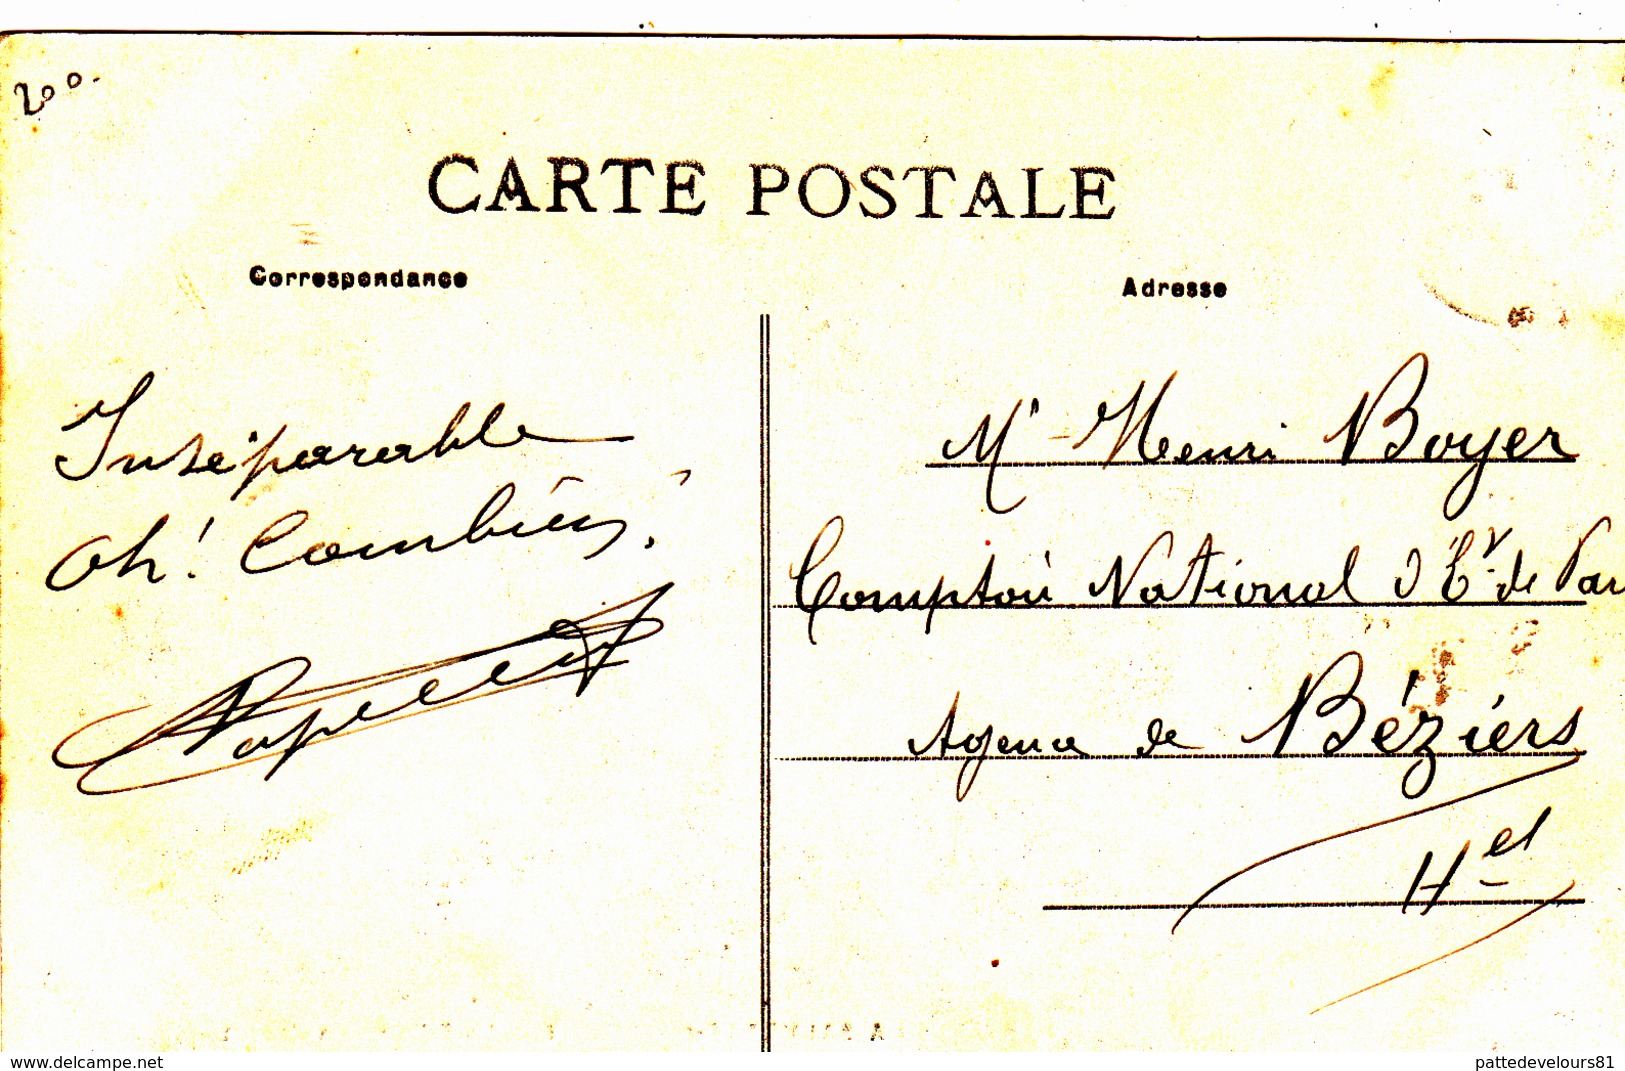 200.
CARTE POSTALE
Correspondance
Adresse
Inséparable
oh! Combien!
Mr Henri Boyer
Comptoir National d'Et de Par
Agence de Béziers
Hel
www.delcampe.net
pattedevelours81